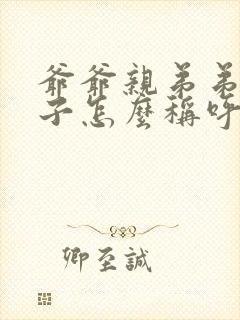 爺爺親弟弟
子怎麼稱呼
卿至誠